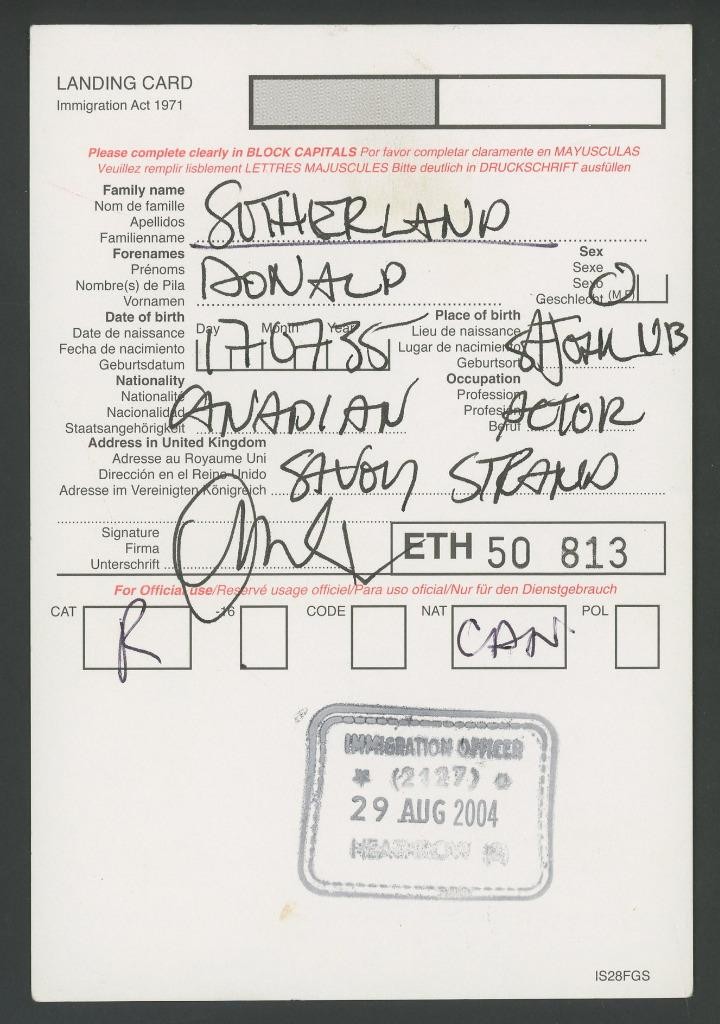 LANDING CARD
Immigration Act 1971
Please complete clearly in BLOCK CAPITALS Por favor completar claramente en MAYUSCULAS
Veuillez remplir lisblement LETTRES MAJUSCULES Bitte deutlich in DRUCKSCHRIFT ausfüllen
Family name
Nom de famille
Apellidos
Familienname
SUTHERLAND
Forenames
Prénoms
Nombre(s) de Pila
Vornamen
DONALD
Sex
Sexe
Sexo
Geschlecht (M F)
Date of birth
Date de naissance
Fecha de nacimiento
Geburtsdatum
Day Month Year
17 07 35
Place of birth
Lieu de naissance
Lugar de nacimiento
Geburtsort
ST JOHN NB
Nationality
Nationalité
Nacionalidad
Staatsangehörigkeit
CANADIAN
Occupation
Profession
Profesión
Beruf
ACTOR
Address in United Kingdom
Adresse au Royaume Uni
Dirección en el Reino Unido
Adresse im Vereinigten Königreich
SAVOY STRAND
Signature
Firma
Unterschrift
ETH 50 813
For Official use/Reservé usage officiel/Para uso oficial/Nur für den Dienstgebrauch
CAT R -16 CODE NAT CAN POL
IMMIGRATION OFFICER
* (2127) *
29 AUG 2004
HEATHROW
IS28FGS